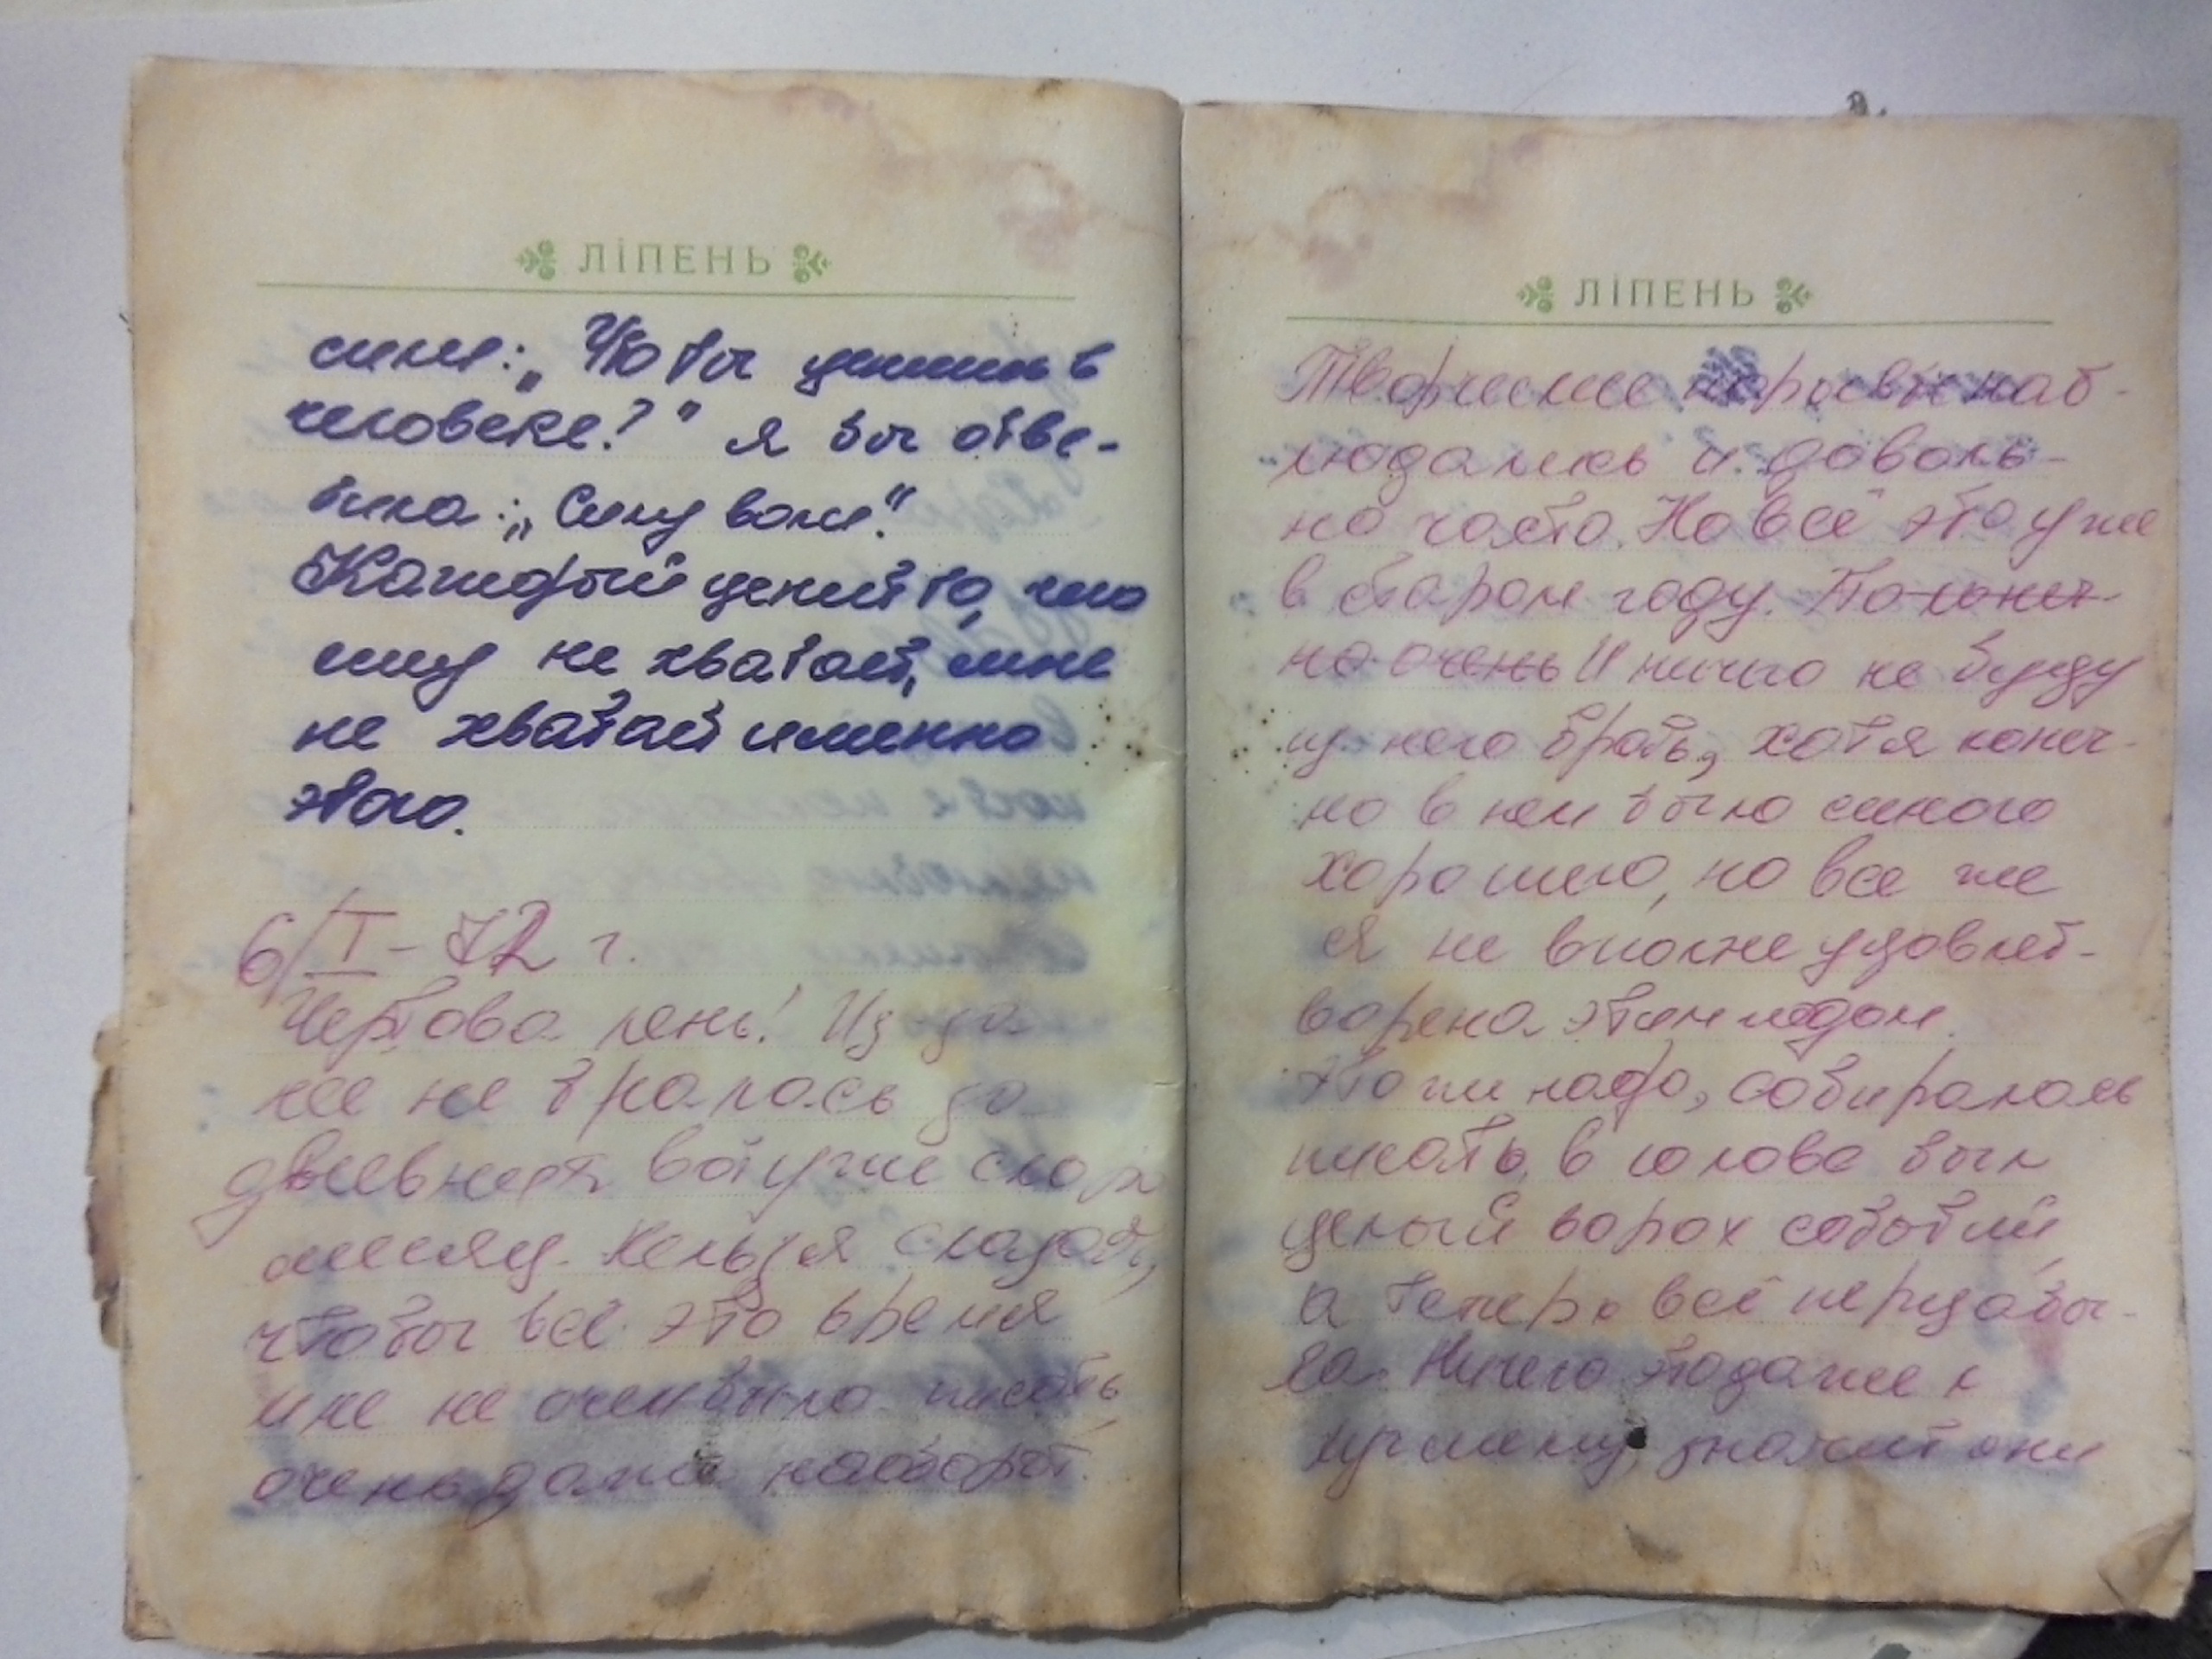 ЛІПЕНЬ
сили: „Что ты ценишь в
человеке?" я бы отве-
тила: „Силу воли."
Каждый ценит то, чего
ему не хватает, мне
не хватает именно
этого.
6/I – 72 г.
Чертова лень! Из за
нее не бралась за
дневник вот уже скоро
месяц. Нельзя сказать,
чтобы всё это время
мне не о чем было писать,
очень даже наоборот.
ЛІПЕНЬ
Творческие порывы наб-
людались и доволь-
но часто. Но всё это уже
в старом году. То конеч-
но очень И ничего не буду
из него брать, хотя конеч-
но в нем было много
хорошего, но все же
я не вполне удовлет-
ворена этим годом.
Это ж надо, собиралась
писать, в голове был
целый ворох событий,
а теперь всё перезабы-
ла. Ничего это даже к
лучшему, значит они